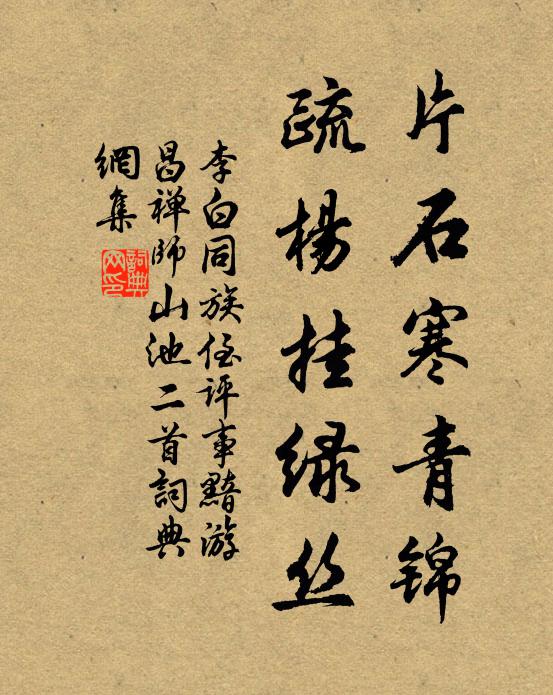 片石寒青锦
疏楊挂绿丝
李白同族侄評事黯游
昌禅師山池二首詞典
網集
詞典
网印